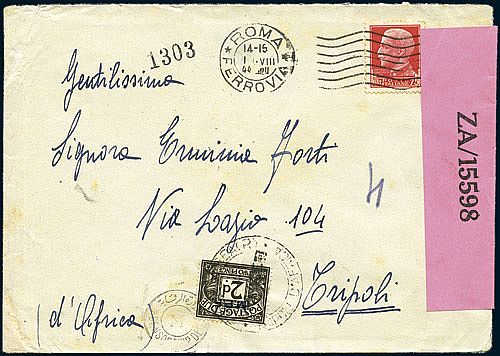 1303
ROMA
FERROVIA
14-15
VIII
44
Gentilissima
Signora Erminia Forti
Via Lazio 104
Tripoli
(d'Africa)
4
ZA/15598
POSTAGE DUE
2D